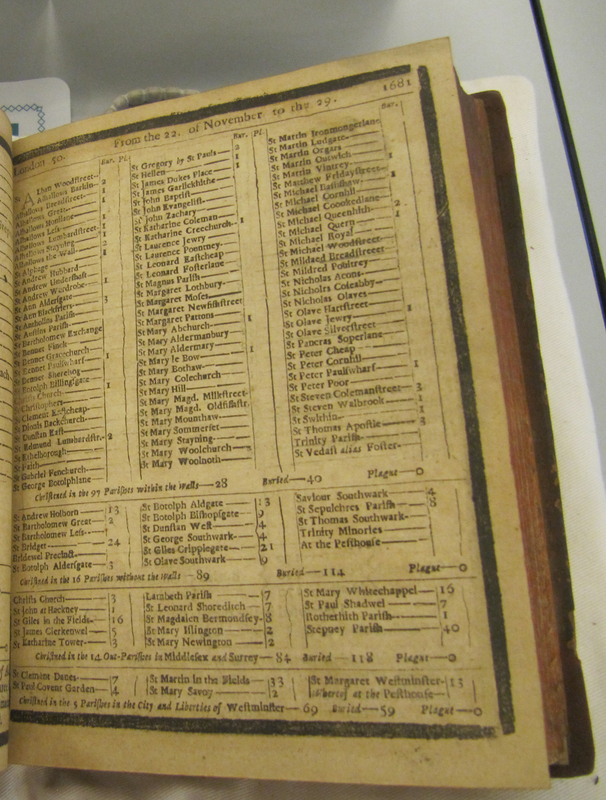 London 50. From the 22. of November to the 29. 1681
Bur. Pl.
St Alban Woodstreet
Alhallows Barkin 2
Alhallows Breadstreet 1
Alhallows Great
Alhallows Less
Alhallows Lumbardstreet 1
Alhallows Stayning 2
Alhallows the Wall 1
St Alphage
St Andrew Hubbard
St Andrew Undershaft
St Andrew Wardrobe 1
St Ann Aldersgate
St Ann Blackfriers 3
St Austins Parish
St Bartholomew Exchange
St Bennet Finck
St Bennet Gracechurch
St Bennet Paulswharf 1
St Bennet Sherehog
St Botolph Billingsgate 1
Christs Church
St Christophers
St Clement Eastcheap
St Dionis Backchurch
St Dunstan East
St Edmund Lumbardstr. 2
St Ethelborough
St Faith
St Gabriel Fenchurch
St George Botolphlane
Bur. Pl.
St Gregory by St Pauls 2
St Hellen 1
St James Dukes Place 1
St James Garlickhithe
St John Baptist
St John Evangelist
St John Zachary
St Katharine Coleman
St Katharine Creechurch 1
St Laurence Jewry
St Laurence Pountney
St Leonard Eastcheap
St Leonard Fosterlane
St Magnus Parish
St Margaret Lothbury
St Margaret Moses
St Margaret Newfishstreet
St Margaret Pattons
St Mary Abchurch 1
St Mary Aldermanbury
St Mary Aldermary
St Mary le Bow 1
St Mary Bothaw
St Mary Colechurch
St Mary Hill
St Mary Magd. Milkstreet
St Mary Magd. Oldfishstr.
St Mary Mounthaw
St Mary Somerset
St Mary Stayning
St Mary Woolchurch
St Mary Woolnoth
Bur.
St Martin Ironmongerlane
St Martin Ludgate
St Martin Orgars
St Martin Outwich
St Martin Vintrey 1
St Matthew Fridaystreet
St Michael Bassishaw 1
St Michael Cornhil
St Michael Crookedlane
St Michael Queenhith 2
St Michael Quern 1
St Michael Royal
St Michael Woodstreet
St Mildred Breadstreet
St Mildred Poultrey
St Nicholas Acons
St Nicholas Coleabby
St Nicholas Olaves
St Olave Hartstreet
St Olave Jewry 1
St Olave Silverstreet
St Pancras Soperlane
St Peter Cheap
St Peter Cornhil
St Peter Paulswharf 1
St Peter Poor
St Steven Colemanstreet 3
St Steven Walbrook 1
St Swithin 1
St Thomas Apostle 3
Trinity Parish
St Vedast alias Foster
Christned in the 97 Parishes within the Walls 28 Buried 40 Plague 0
St Andrew Holborn 13
St Bartholomew Great 2
St Bartholomew Less 1
St Bridget 24
Bridewel Precinct
St Botolph Aldersgate 3
St Botolph Aldgate 13
St Botolph Bishopsgate 9
St Dunstan West 4
St George Southwark 4
St Giles Cripplegate 21
St Olave Southwark 9
Saviour Southwark 4
St Sepulchres Parish 8
St Thomas Southwark
Trinity Minories
At the Pesthouse
Christned in the 16 Parishes without the Walls 89 Buried 114 Plague 0
Christs Church 3
St John at Hackney 1
St Giles in the Fields 16
St James Clerkenwel 5
St Katharine Tower 3
Lambeth Parish 7
St Leonard Shoreditch 7
St Magdalen Bermondsey 8
St Mary Islington 2
St Mary Newington 2
St Mary Whitechappel 16
St Paul Shadwel 7
Rotherhith Parish 1
Stepney Parish 40
Christned in the 14 Out-Parishes in Middlesex and Surrey 84 Buried 118 Plague 0
St Clement Danes 7
St Paul Covent Garden 4
St Martin in the Fields 33
St Mary Savoy 2
St Margaret Westminster 13
Whereof at the Pesthouse
Christned in the 5 Parishes in the City and Liberties of Westminster 69 Buried 59 Plague 0